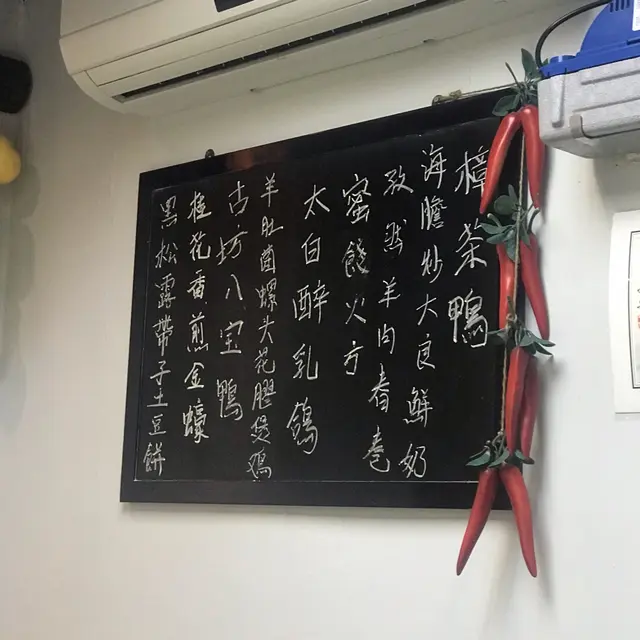 樟茶鴨
海膽炒大良鮮奶
孜然羊肉春卷
蜜餞火方
太白醉乳鴿
羊肚菌螺头花膠煲鸡
古坊八宝鴨
桂花香煎金蠔
黑松露帶子土豆餅